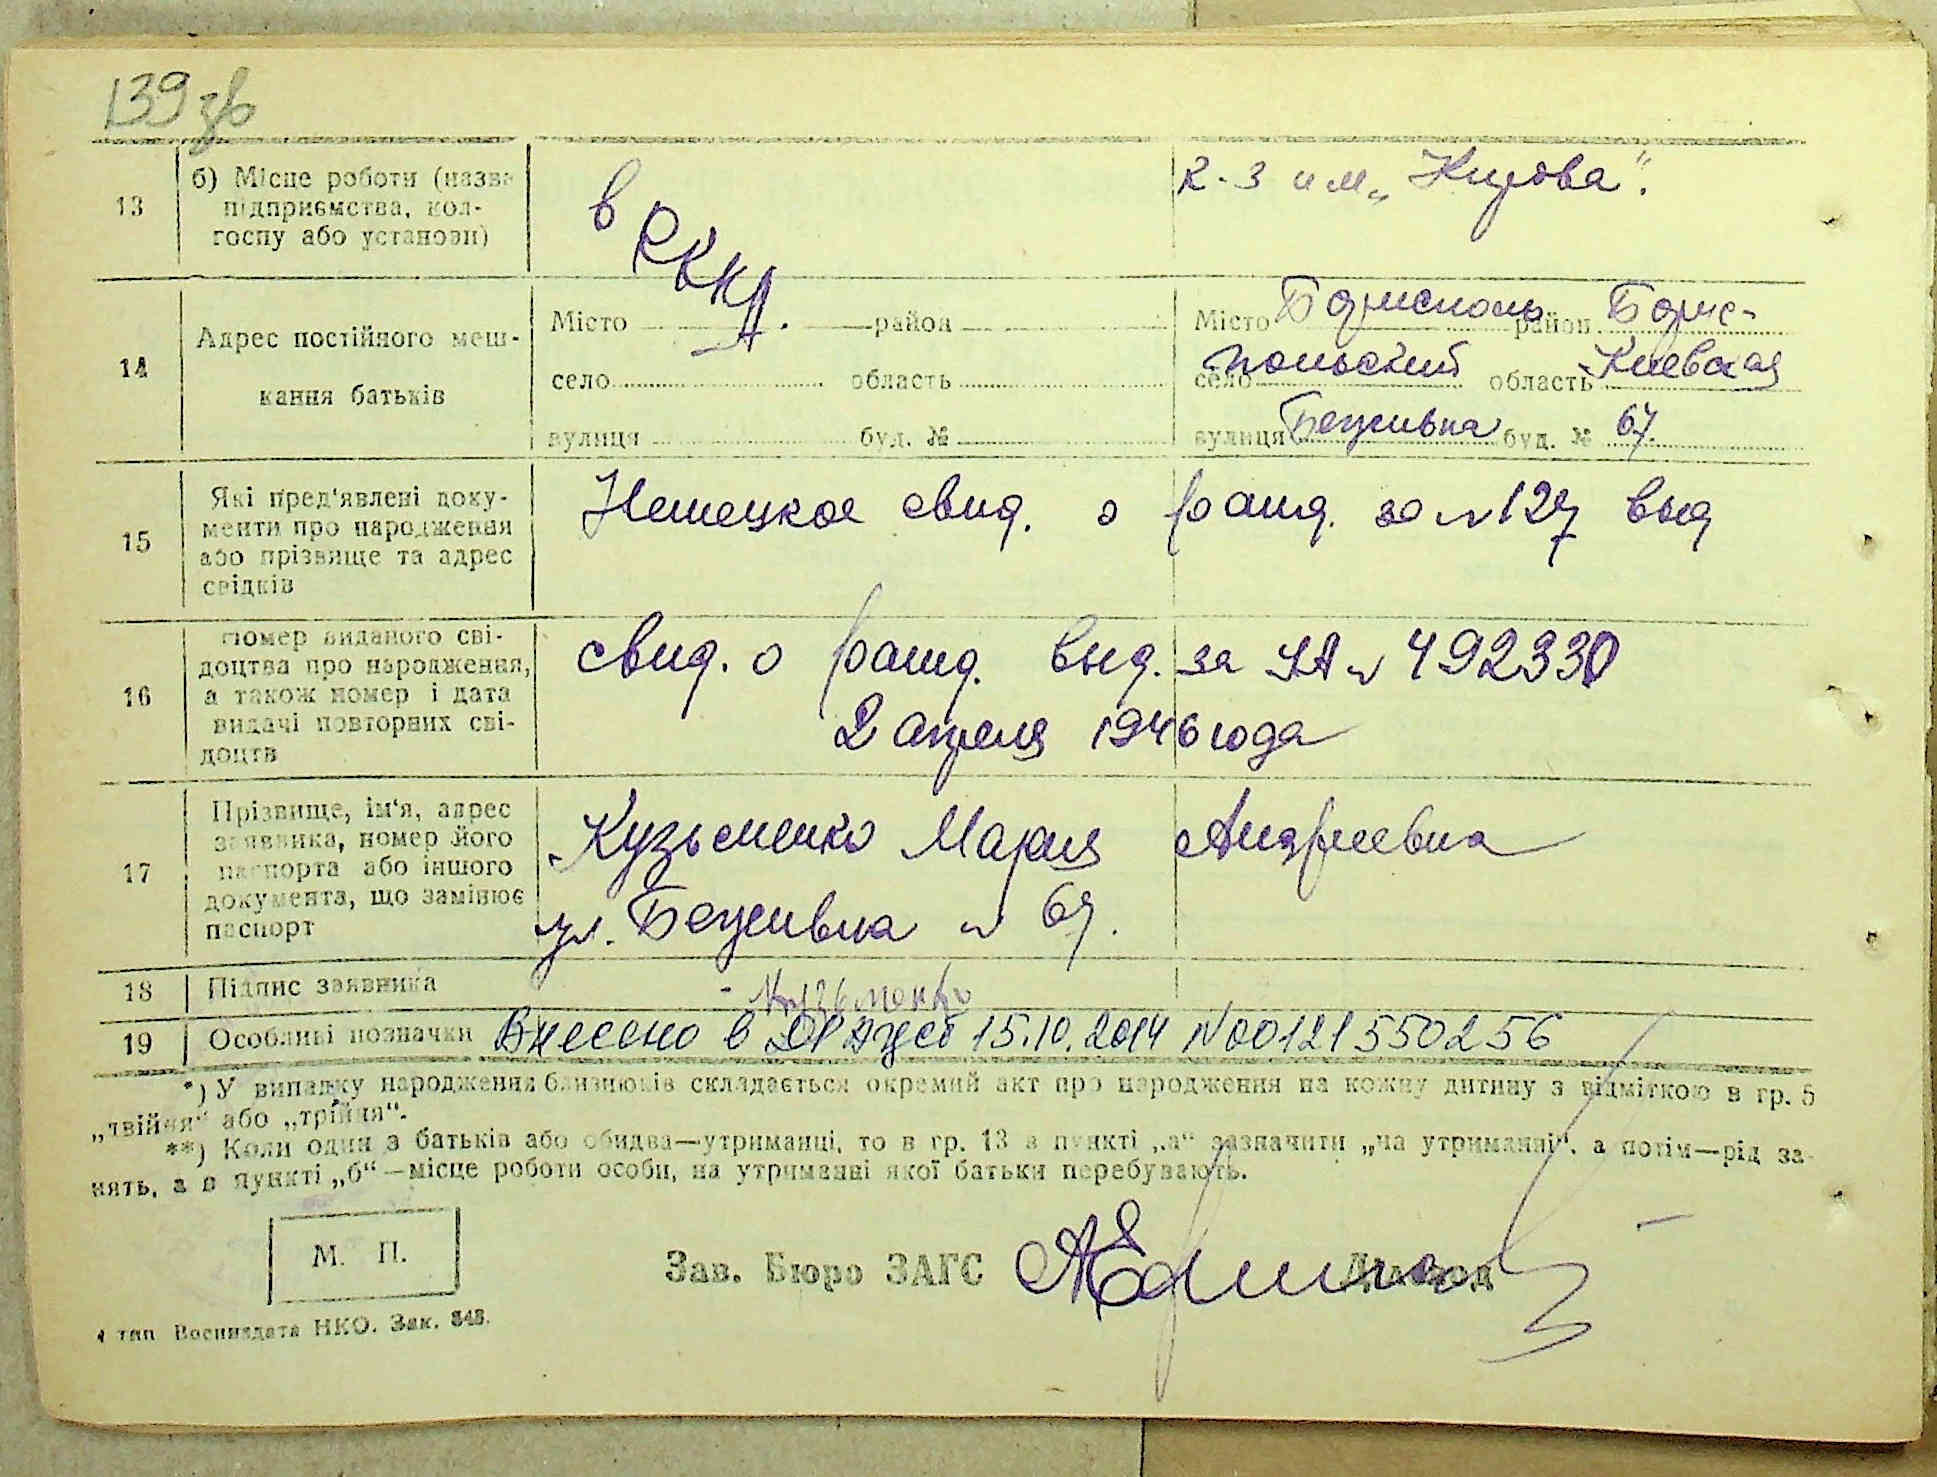 139 зв
13
б) Місце роботи (назва підприємства, колгоспу або установи)
в РККА.
к-з им. „Кирова".
14
Адрес постійного мешкання батьків
Місто район
село область
вулиця буд. №
Місто Борисполь район Борис-
польский
село область Киевская
вулиця буд. № 67.
15
Які пред'явлені документи про народження або прізвище та адрес свідків
Немецкое свид. о рожд. за № 127 выд
16
Номер виданого свідоцтва про народження, а також номер і дата видачі повторних свідоцтв
свид. о рожд. выд. за № 492330
2 апреля 1946 года
17
Прізвище, ім'я, адрес заявника, номер його паспорта або іншого документа, що замінює паспорт
Кузьменко Мария Андреевна
ул. № 67.
18
Підпис заявника
Кузьменко
19
Особливі позначки
Внесено в 15.10.2014 №00121550256
*) У випадку народження близнюків складається окремий акт про народження на кожну дитину з відміткою в гр. 5
„двійня" або „трійня".
**) Коли один з батьків або обидва—утриманці, то в гр. 13 в пункті „а" зазначити „на утриманні", а потім—рід за-
нять, а в пункті „б"—місце роботи особи, на утриманні якої батьки перебувають.
М. П.
Зав. Бюро ЗАГС
тип Воениздата НКО. Зак. 848.